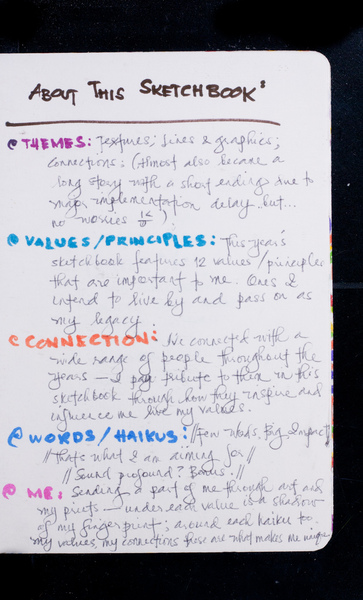 ABOUT THIS SKETCHBOOK:
@ THEMES: Textures; lines & graphics;
connections; (Almost also became a
long story with a short ending due to
major implementation delay but...
no worries
@ VALUES/PRINCIPLES: This year's
sketchbook features 12 values/principles
that are important to me. Ones I
intend to live by and pass on as
my legacy
@ CONNECTION: I've connected with a
wide range of people throughout the
years — I pay tribute to them in this
sketchbook through how they inspire and
influence me live my values.
@ WORDS/HAIKUS: //Few Words. Big Impact//
//That's what I am aiming for//
//Sound profound? Bonus :)//
@ ME: Sending a part of me through art and
my prints — under each value is a shadow
of my fingerprint; around each haiku too.
My values, my connections these are what makes me unique